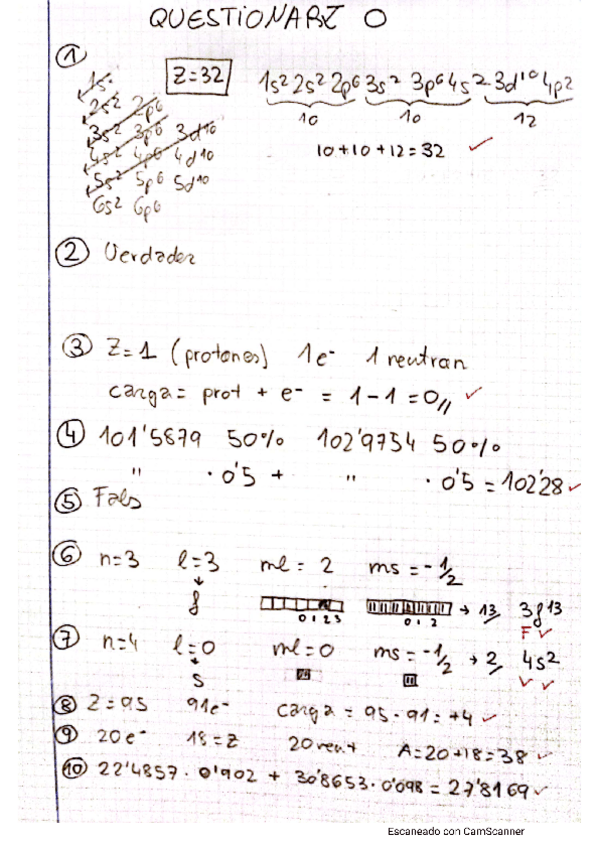 QUESTIONARI 0
① Z=32 1s² 2s² 2p⁶ 3s² 3p⁶ 4s² 3d¹⁰ 4p²
1s²
10 10 12
2s² 2p⁶
3s² 3p⁶ 3d¹⁰
10+10+12=32 ✓
4s² 4p⁶ 4d¹⁰
5s² 5p⁶ 5d¹⁰
6s² 6p⁶
② Verdader
③ Z=1 (protones) 1e⁻ 1 neutran
carga = prot + e⁻ = 1-1=0,, ✓
④ 101'5879 50% 102'9754 50%
" ·0'5 + " ·0'5 = 102'28 ✓
⑤ Fals
⑥ n=3 l=3 ml= 2 ms=-1/2
f 0 1 2 3 0 1 2 → 13, 3f¹³
F ✓
⑦ n=4 l=0 ml=0 ms=-1/2 → 2, 4s²
s ✓ ✓
⑧ Z=95 91e⁻ carga = 95-91= +4 ✓
⑨ 20e⁻ 18=Z 20 neut A=20+18=38 ✓
⑩ 22'4857·0'902 + 30'8653·0'098 = 27'8169 ✓
Escaneado con CamScanner